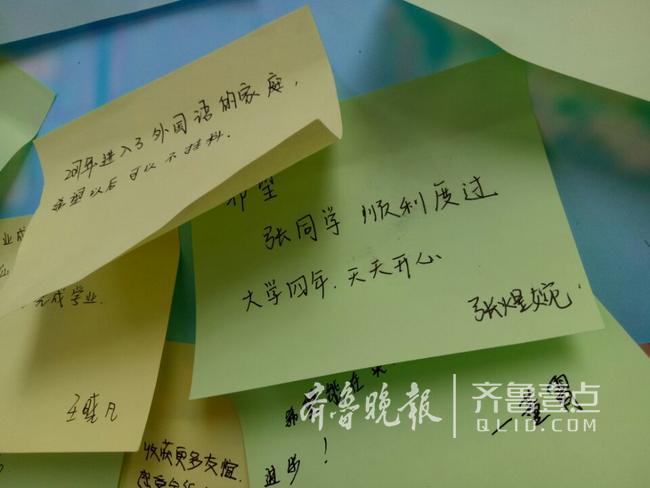 2017年进入了外国语的家庭，
希望以后可以不挂科.
希望
张同学 顺利度过
大学四年.天天开心
张煜婉
完成学业.
王晓凡
收获更多友谊.
进步！
齐鲁晚报
齐鲁壹点
QLID.COM